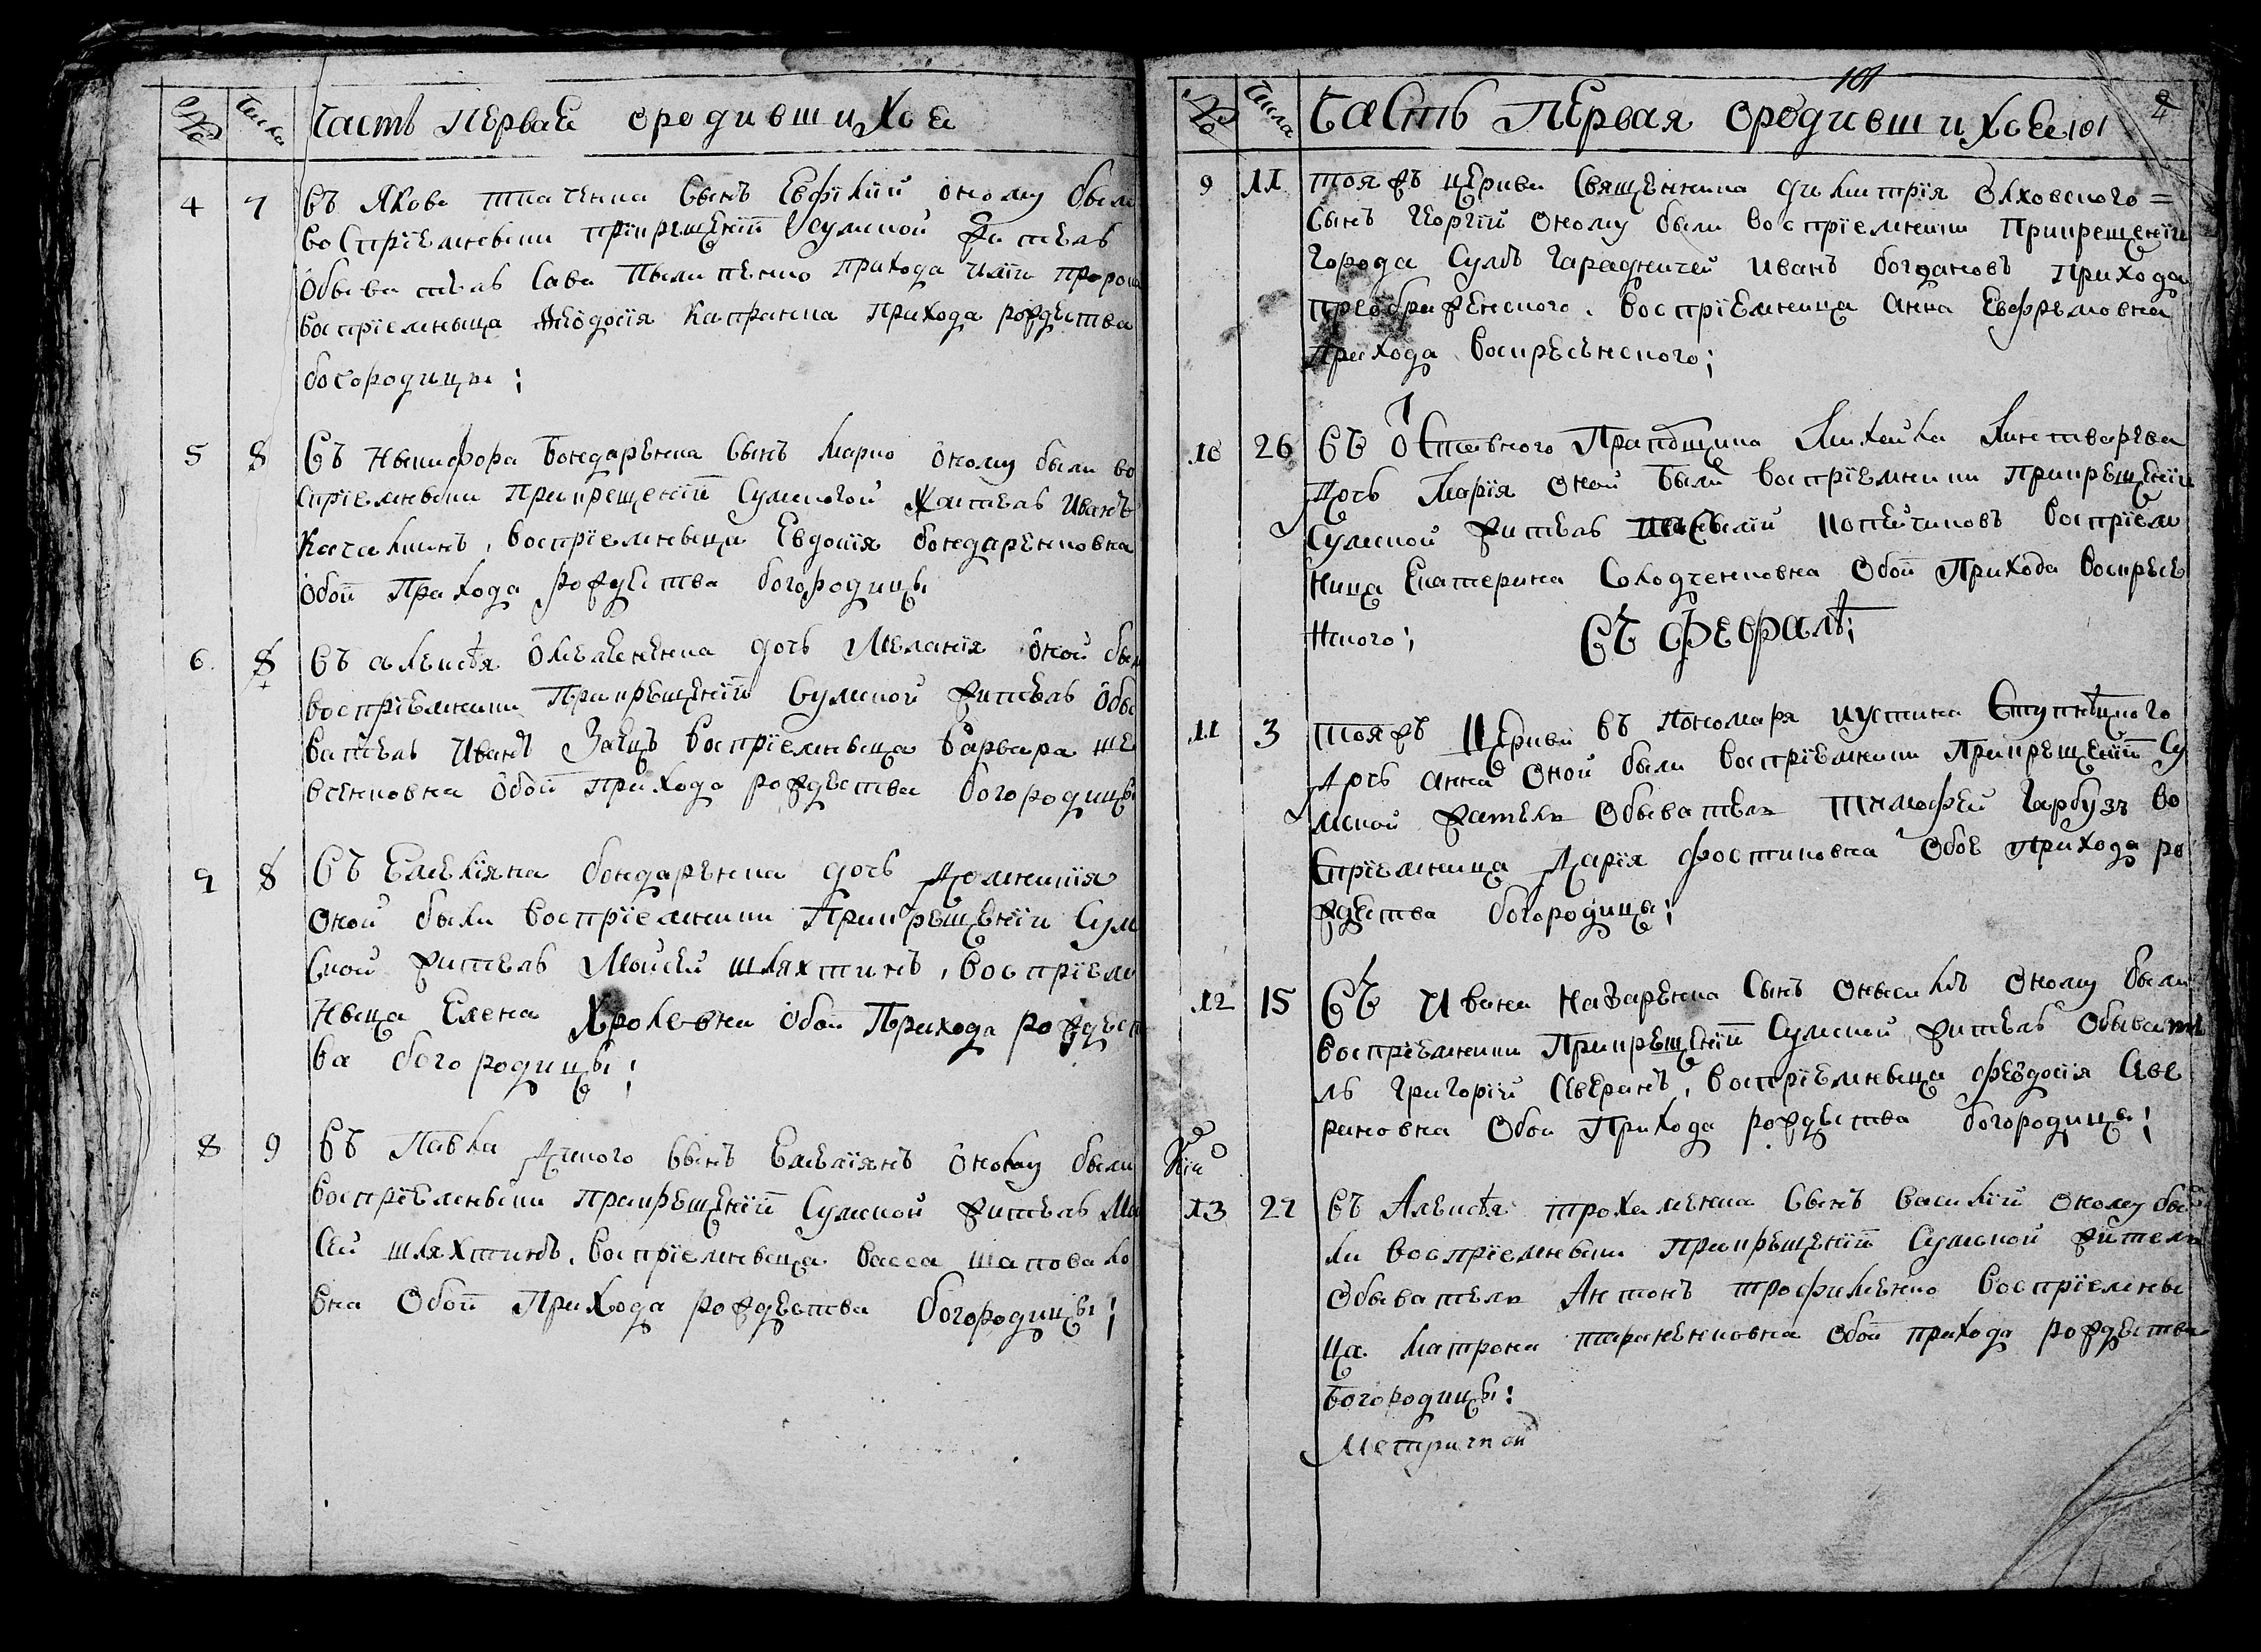 № Числа Часть первая о родившихся
4 7 Въ Якова ткаченка сынъ Евфимій оному были
воспріемныки при крещеніи Сумской житель
обыватель Сава Пилипенко прихода Иліи проро
воспріемныца Феодосія прихода рождества
богородицы;
5 8 Въ Никифора Бондаренка сынъ Марко оному были во
спріемныки при крещеніи Сумской житель Иванъ
воспріемныца Евдокія бондаренковна
обои Прихода рождества богородицы
6 8 Въ алексѣя Омеляненка дочь Меланія оной были
воспріемники При крещеніи Сумской житель обы
ватель Иванъ Заецъ воспріемныца Варвара ше
вченковна обои Прихода рождества богородицы
7 8 Въ Емеліяна бондаренка дочь Домникія
оной были воспріемники При крещеніи Сум
ской житель Мойсей шляхтинъ, воспріем
ныца Елена обои Прихода рождест
ва богородицы;
8 9 Въ Павла сынъ Емеліянъ оному были
воспріемныки При крещеніи Сумской житель Мо
сей шляхтинъ, воспріемныца васса шаповало
вна обои Прихода рождества богородицы;
101
№ Числа Часть Первая о родившихся 101
9 11 тояжъ церкви Священника димитрія Олховского=
сынъ Георгій оному были воспріемники При крещеніи
города Сумъ Гарадничей Иванъ богдановъ прихода
преображенского, воспріемница Анна Евфремовна
прихода воскресенского;
10 26 Въ отставного Прапорщика Михайла
дочь Марія оной были воспріемники При крещеніи
Сумской житель воспріем
ница Екатерина Солодченковна обои Прихода воскресе
нского; Въ Февралѣ;
11 3 тояжъ Церкви въ Пономаря иустина Ступницкого
дочь анна оной были воспріемники При крещеніи Су
мской жатель обыватель тимофей Гарбузъ во
спріемница Дарія обое прихода ро
ждества богородицы;
12 15 Въ Ивана Назаренка сынъ онысимъ оному были
воспріемники При крещеніи Сумской житель обывате
ль григорій Аверинъ, воспріемныца феодосія Аве
риновна обои Прихода рождества богородицы;
13 27 Въ Алексѣя сынъ василій оному бы
ли воспріемныки При крещеніи Сумской житель
обыватель Антонъ трофименко воспріемны
ца матрона тараненковна обои прихода рождества
богородицы;
Метрической